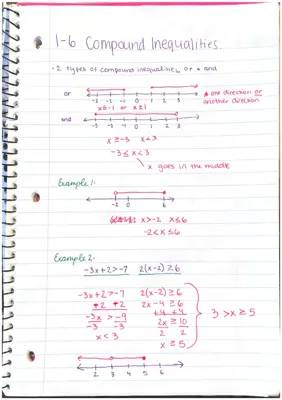 1-6 Compound Inequalities
- 2 types of compound inequalities, or + and
or
* one direction or another direction
-3 -2 -1 0 1 2 3
x≤-1 or x>1
and
-3 -2 -1 0 1 2 3
x ≥ -3 x < 3
-3 ≤ x < 3
x goes in the middle
Example 1:
-2 0 6
x>-2 x≤6
-2<x≤6
Example 2:
-3x+2>-7 2(x-2)≥6
-3x+2>-7 2(x-2)≥6
-2 -2 2x-4≥6
-3x>-9 +4 +4
-3 -3 2x≥10
x<3 2 2
x≥5
3>x≥5
2 3 4 5 6